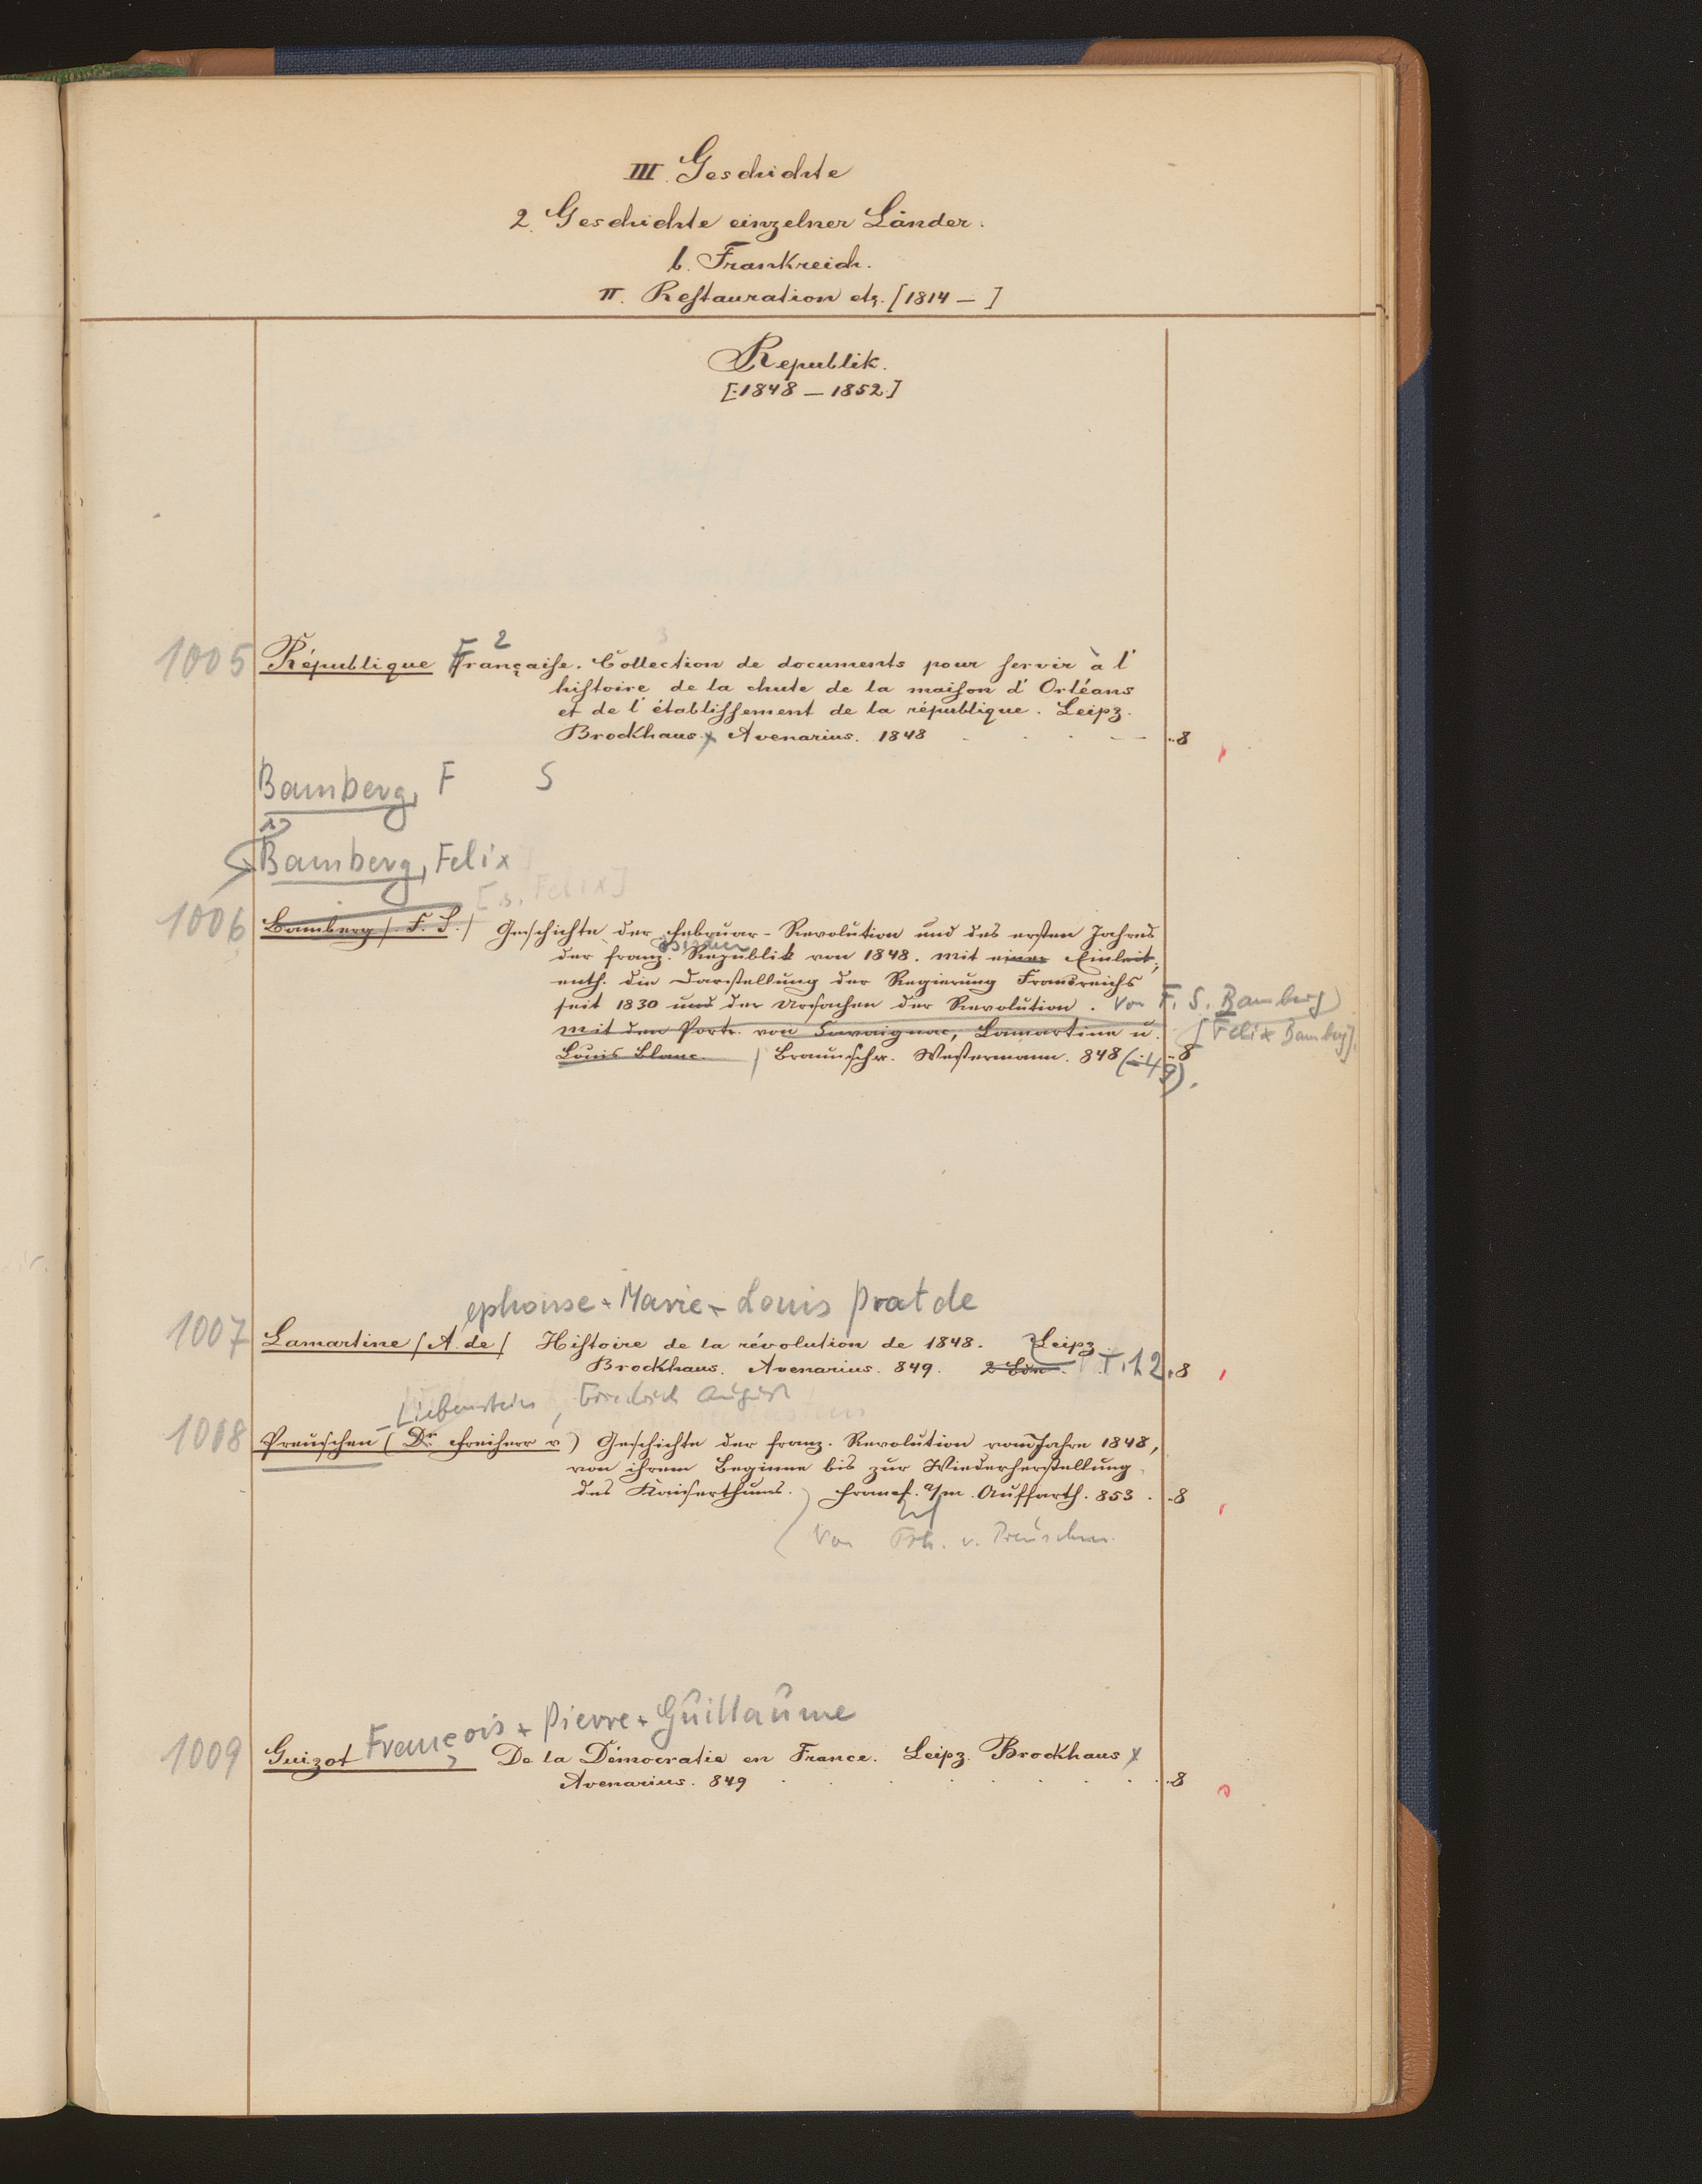 III. Geschichte
2. Geschichte einzelner Länder.
b. Frankreich.
II. Restauration etz. [1814 — ]
Republik.
[1848 — 1852]
2
1005 République Française. Collection de documents pour servir à l'
histoire de la chute de la maison d' Orléans
et de l' établissement de la république. Leipz.
Brockhaus x Avenarius. 1848 8
Bamberg, F S
Bamberg, Felix
[s. Felix]
1006 Bamberg / F. S. / Geschichte der Februar-Revolution und des ersten Jahres
der franz. Republik von 1848. Mit einer Einleit.,
enth. die Darstellung der Regierung Frankreichs
seit 1830 und der Ursachen der Revolution. Von F. S. Bamberg
Mit den Portr. von Cavaignac, Lamartine u. [Felix Bamberg].
Louis Blanc. / Braunschw. Westermann. 848 (-49). 8
ephonse - Marie - Louis Prat de
1007 Lamartine / A. de / Histoire de la révolution de 1848. Leipz.
Brockhaus. Avenarius. 849. 2 Bde. T. 1.2. 8
- Liebenstein, Friedrich August
1008 Preuschen (Dr Freiherr v.) Geschichte der franz. Revolution vom Jahre 1848,
von ihrem Beginne bis zur Wiederherstellung
des Kaiserthums. Francf. a/m. Auffarth. 853. 8
Von Frh. v. Preuschen.
François + Pierre + Guillaume
1009 Guizot, De la Démocratie en France. Leipz. Brockhaus x
Avenarius. 849 8